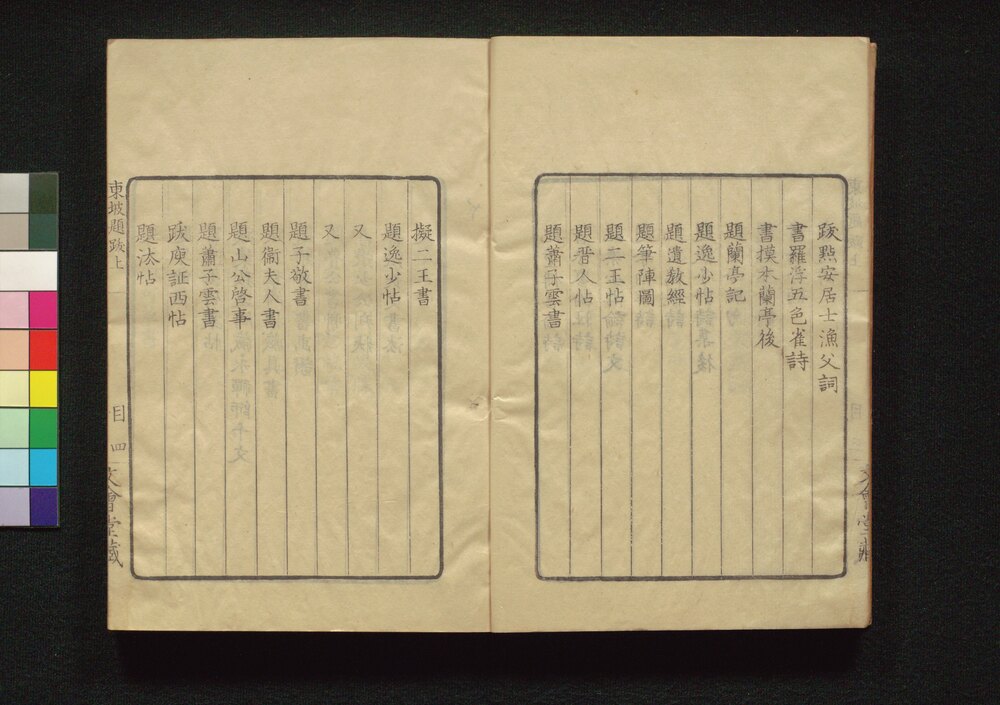 跋㸃安居士漁父詞
書羅浮五色雀詩
書摸本蘭亭後
題蘭亭記
題逸少帖
題遺教經
題筆陣圖
題二王帖
題晋人帖
題蕭子雲書
文會堂藏
擬二王書
題逸少帖
又
又
題子敬書
題衞夫人書
題山公啓事
題蕭子雲書
跋庾証西帖
題法帖
東坡題跋上
目
四
文會堂藏